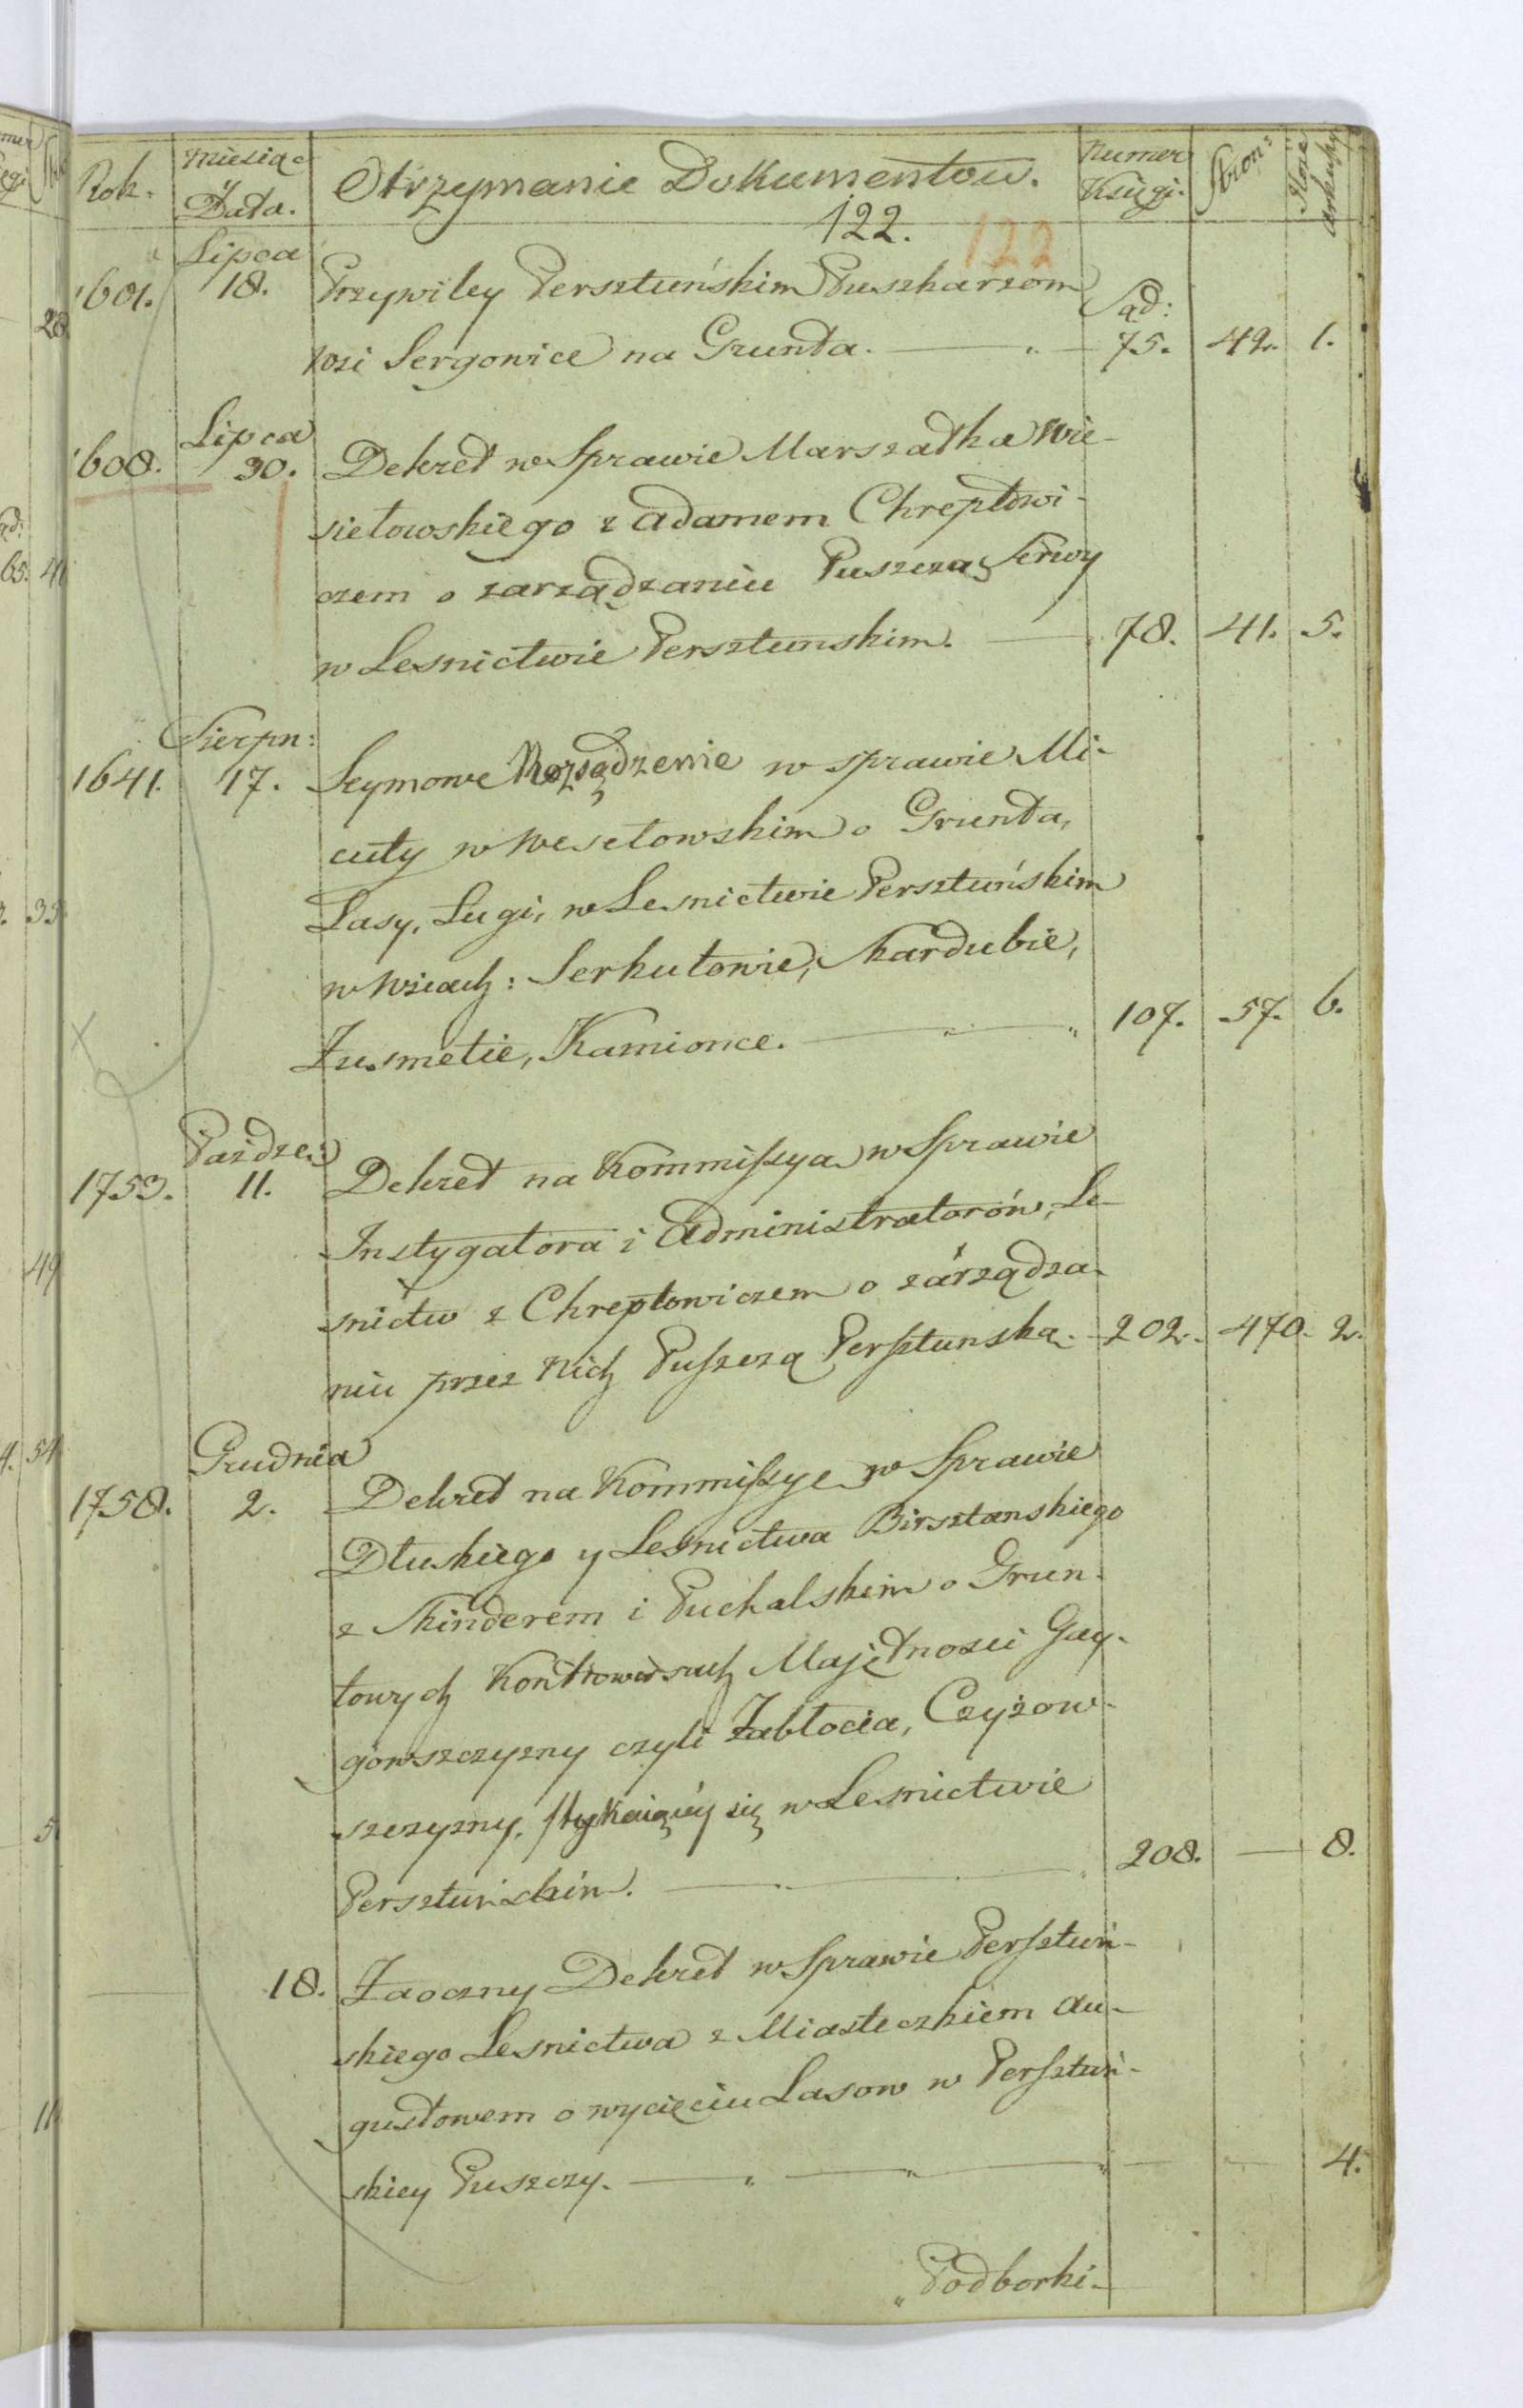 Rok.
Miesiąc
y
Data.
Otrzymanie Dokumentow.
Numer
Księgi.
Stron:
Ilość
arkuszy
122.
122
Lipca
1601. 18. Przywiley Persztuńskim Puszkarzom
Sąd:
wsi Sergowice na Grunta. 75. 42. 1.
Lipca
1608. 30. Dekret w Sprawie Marszałka Wie-
siełowskiego z Adamem Chreptowi-
czem o zarządzaniu Puszczą Serwy
w Lesnictwie Persztunskim. 78. 41. 5.
Sierpn:
1641. 17. Seymowe Rozsądzenie w sprawie Mi-
cuty w Wesełowskim o Grunta,
Lasy, Ługi, w Lesnictwie Persztuńskim
w Wsiach: Serkutowie, Skardubie,
Zusmetie, Kamionce. 107. 57. 6.
Paźdze:
1753. 11. Dekret na Kommissya w Sprawie
Instygatora i Administratorów, Le-
snictw z Chreptowiczem o zarządza-
niu przez Nich Puszczą Persztunską. 202. 470. 2.
Grudnia
1758. 2. Dekret na Kommissye w Sprawie
Dłuskiego y Lesnictwa Birsztanskiego
z Skinderem i Puchalskim o Grun-
towych Kontrowersach Majętnosci Gay-
gowszczyzny czyli Zabłocia, Czyżow-
szczyzny, stykaiącéy się w Lesnictwie
Persztuńskim. 208. 8.
18. Zaoczny Dekret w Sprawie Persztuń-
skiego Lesnictwa z Miasteczkiem Au-
gustowem o wycięciu Lasow w Persztuń-
skiey Puszczy. 4.
Podborki-